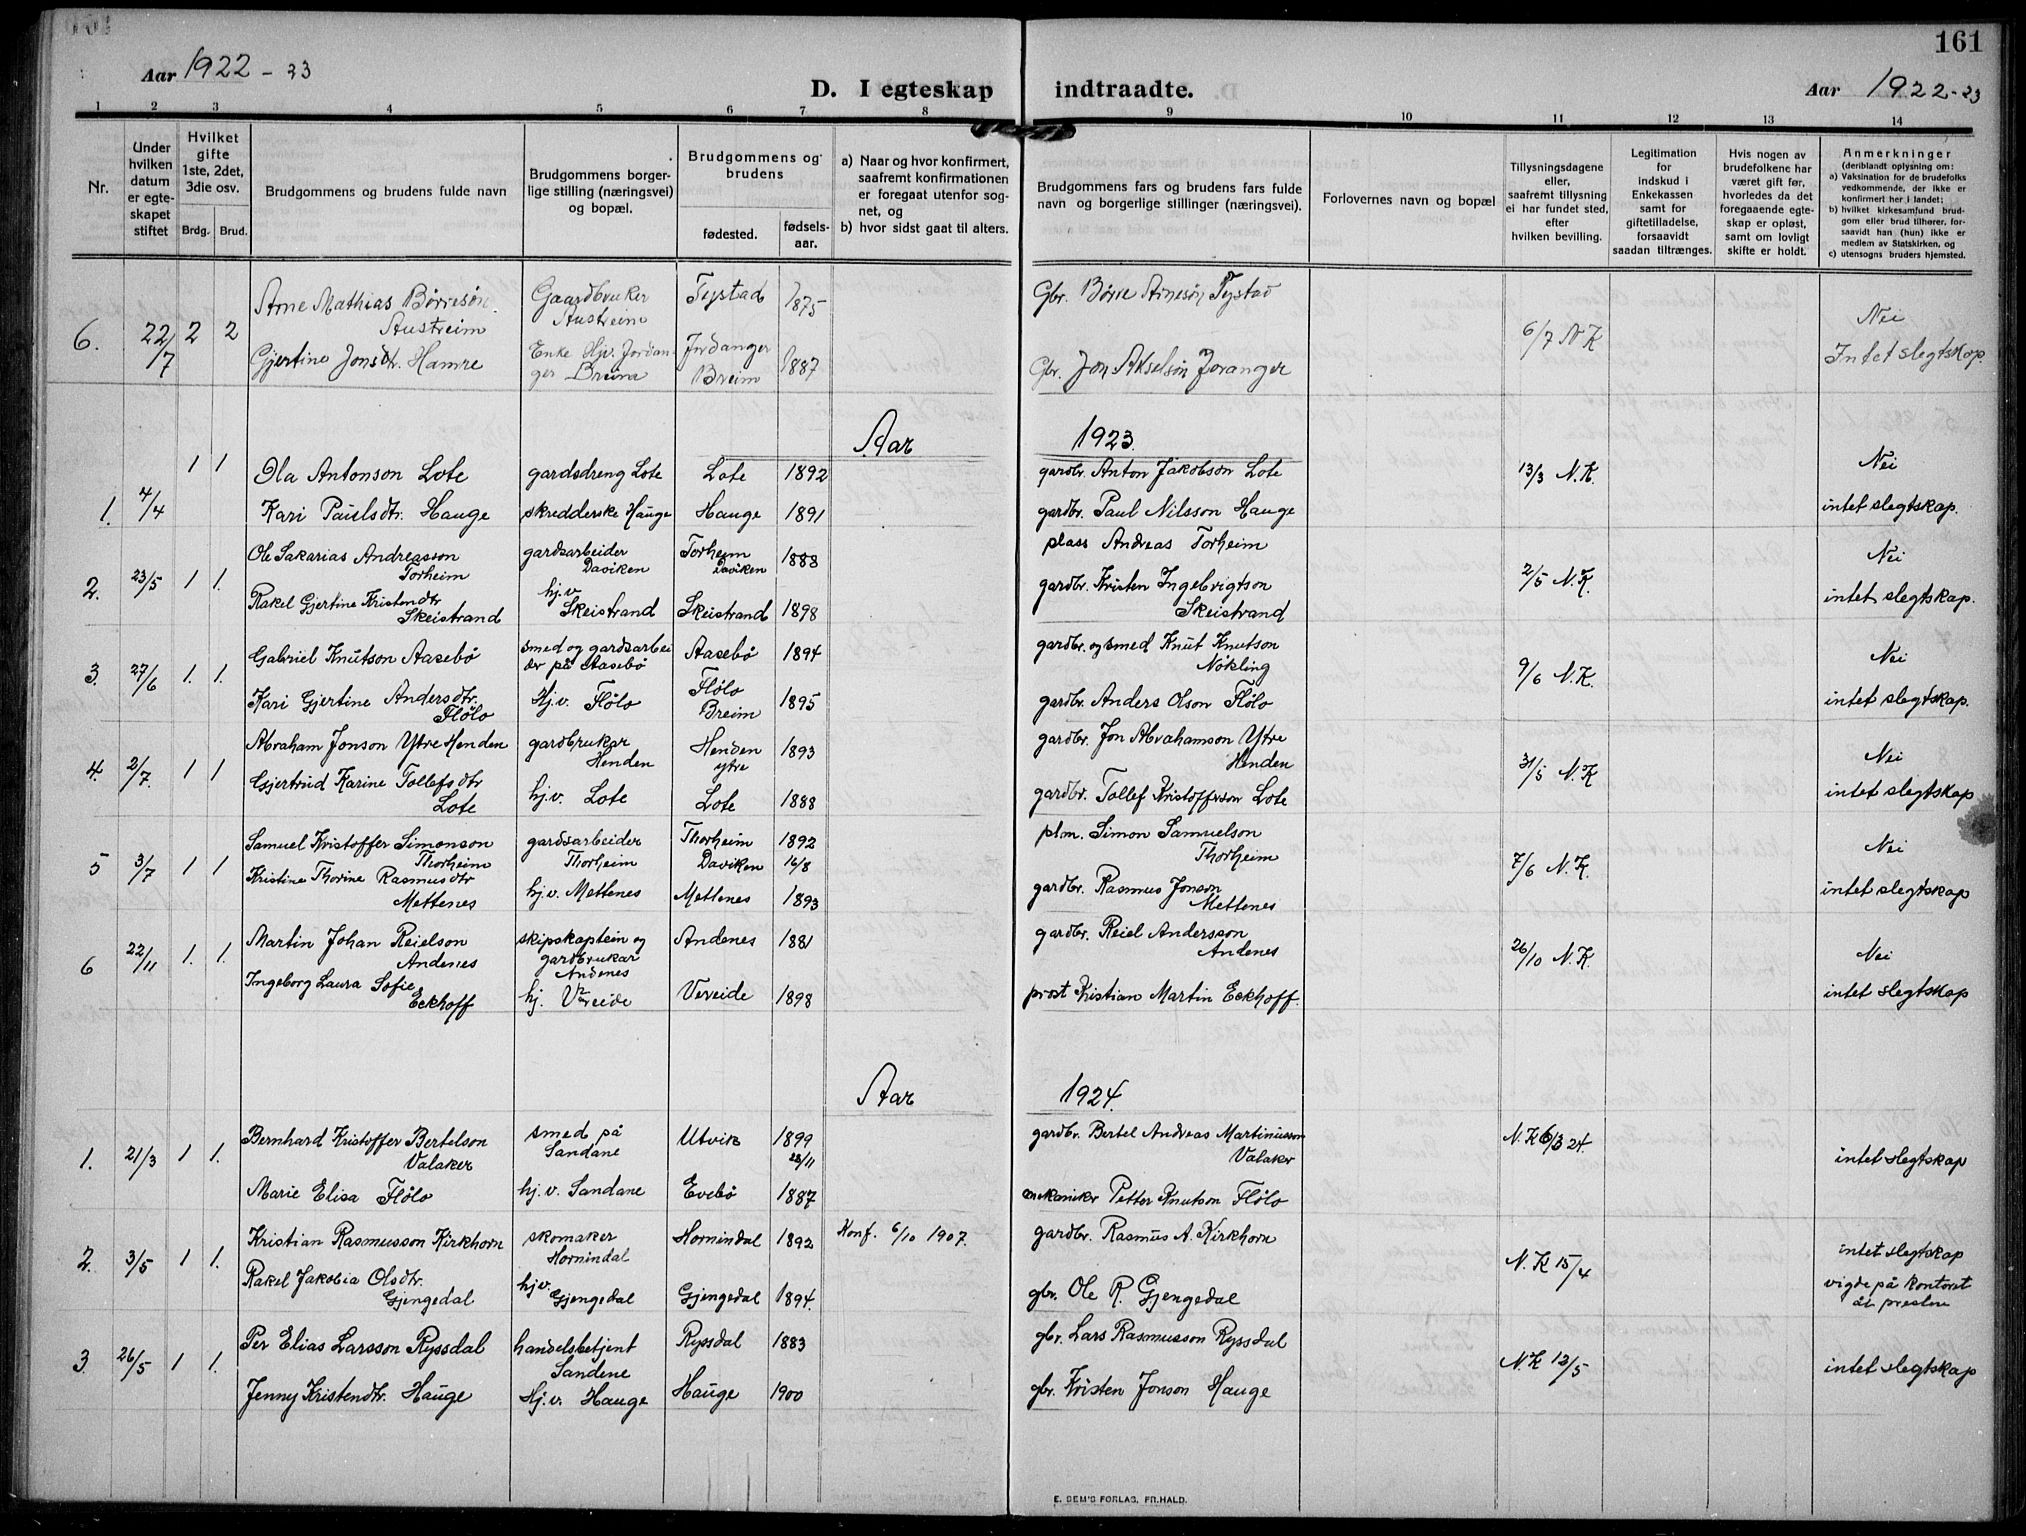 161
Aar 1922 - 23
D. I egteskap indtraadte.
Aar 1922-23
1 2 3 4 5 6 7 8 9 10 11 12 13 14
Nr.
Under hvilken datum er egteskapet stiftet
Hvilket gifte 1ste, 2det, 3die osv.
Brdg. Brud.
Brudgommens og brudens fulde navn
Brudgommens borgerlige stilling (næringsvei) og bopæl.
Brudgommens og brudens
fødested.
fødselsaar.
a) Naar og hvor konfirmert, saafremt konfirmationen er foregaat utenfor sognet, og
b) hvor sidst gaat til alters.
Brudgommens fars og brudens fars fulde navn og borgerlige stillinger (næringsvei).
Forlovernes navn og bopæl
Tillysningsdagene eller, saafremt tillysning ei har fundet sted, efter hvilken bevilling.
Legitimation for indskud i Enkekassen samt for giftetilladelse, forsaavidt saadan tiltrænges.
Hvis nogen av brudefolkene har været gift før, hvorledes da det foregaaende egteskap er opløst, samt om lovligt skifte er holdt.
Anmerkninger
(deriblandt oplysning om:
a) Vaksination for de brudefolks vedkommende, der ikke er konfirmert her i landet;
b) hvilket kirkesamfund brudgom eller brud tilhører, forsaavidt han (hun) ikke er medlem av Statskirken, og
c) utensogns bruders hjemsted.
6. 22/7 2 2
Arne Mathias Børresøn Austreim
Gaardbruker Austreim
Tystad 1875
Gbr. Børre Arnesøn Tystad
6/7 N K
Nei
Gjertine Jonsdtr. Hamre
Enke Hjv. Jordanger Breim
Jordanger Breim 1887
Gbr. Jon Akselsøn Joranger
Intet slegtskap.
Aar 1923.
1. 4/4 1 1
Ola Antonson Lote
gardsdreng Lote
Lote 1892
gardbr. Anton Jakobson Lote
13/3 N.K.
Nei
Kari Paulsdtr. Hauge
skredderske Hauge
Hauge 1891
gardbr. Paul Nilsson Hauge
intet slegtskap.
2. 23/5 1 1.
Ole Sakarias Andreasson Torheim
gardsarbeider Daviken
Torheim Daviken 1888
plass Andreas Torheim
2/5 N.K.
Nei
Rakel Gjertine Kristendtr Skeistrand
hj.v. Skeistrand
Skeistrand 1898
gardbr. Kristen Ingebrigtson Skeistrand
intet slegtskap.
3. 27/6 1. 1.
Gabriel Knutson Aasebø
smed og gardsarbeider på Aasebø
Aasebø 1894
gardbr. og smed Knut Knutson Nøkling
9/6 N.K.
Nei
Kari Gjertine Andersdtr. Flølo
Hj.v. Flølo
Flølo Breim 1895
gardbr. Anders Olson Flølo
intet slegtskap.
4. 2/7. 1 1
Abraham Jonson Ytre Henden
gardbrukar Henden
Henden ytre 1893
gardbr. Jon Abrahamson Ytre Henden
31/5 N.K
Nei
Gjertrud Karine Tollefsdtr Lote
hj.v. Lote
Lote 1888
gardbr. Tollef Kristofferson Lote
intet slegtskap
5 3/7 1 1
Samuel Kristoffer Simonson Thorheim
gardsarbeider Thorheim
Thorheim Daviken 1892 16/8
plm. Simon Samuelson Thorheim
7/6 N.K.
Nei
Kristine Thorine Rasmusdtr Mettenes
hj.v. Mettenes
Mettenes 1893
gardbr. Rasmus Jonson Mettenes
intet slegtskap
6 22/11 1. 1.
Martin Johan Reielson Andenes
skipskaptein og gardbrukar Andenes
Andenes 1881
gardbr. Reiel Andersson Andenes
26/10 N.K.
Nei
Ingeborg Laura Sofie Eckhoff
hj. Vereide
Vereide 1898
prost Kristian Martin Eckhoff.
intet slegtskap
Aar 1924.
1. 21/3 1 1.
Bernhard Kristoffer Bertelson Valaker
smed på Sandane
Utvik 1899 28/11
gardbr. Bertel Andreas Martinusson Valaker
N.K 6/3 24.
Marie Elisa Flølo
hj.v. Sandane
Evebø 1887
mekaniker Petter Knutson Flølo
intet slegtskap
2. 3/5 1 1.
Kristian Rasmusson Kirkhorn
skomaker Hornindal
Hornindal 1892
Konf. 6/10 1907.
gardbr. Rasmus A. Kirkhorn
N.K 15/4
intet slegtskap
Rakel Jakobia Olsdtr. Gjengedal
hj.v. Gjengedal
Gjengedal 1894.
gbr. Ole R. Gjengedal
vigde på kontoret åt presten
3 26/5 1 1.
Per Elias Larsson Ryssdal
handelsbetjent Sandene
Ryssdal 1883
gbr. Lars Rasmusson Ryssdal
N.K 12/5
intet slegtskap
Jenny Kristendtr. Hauge
Hj.v. Hauge
Hauge 1900
gbr. Kristen Jonson Hauge
E. SEM'S FORLAG, FR.HALD.